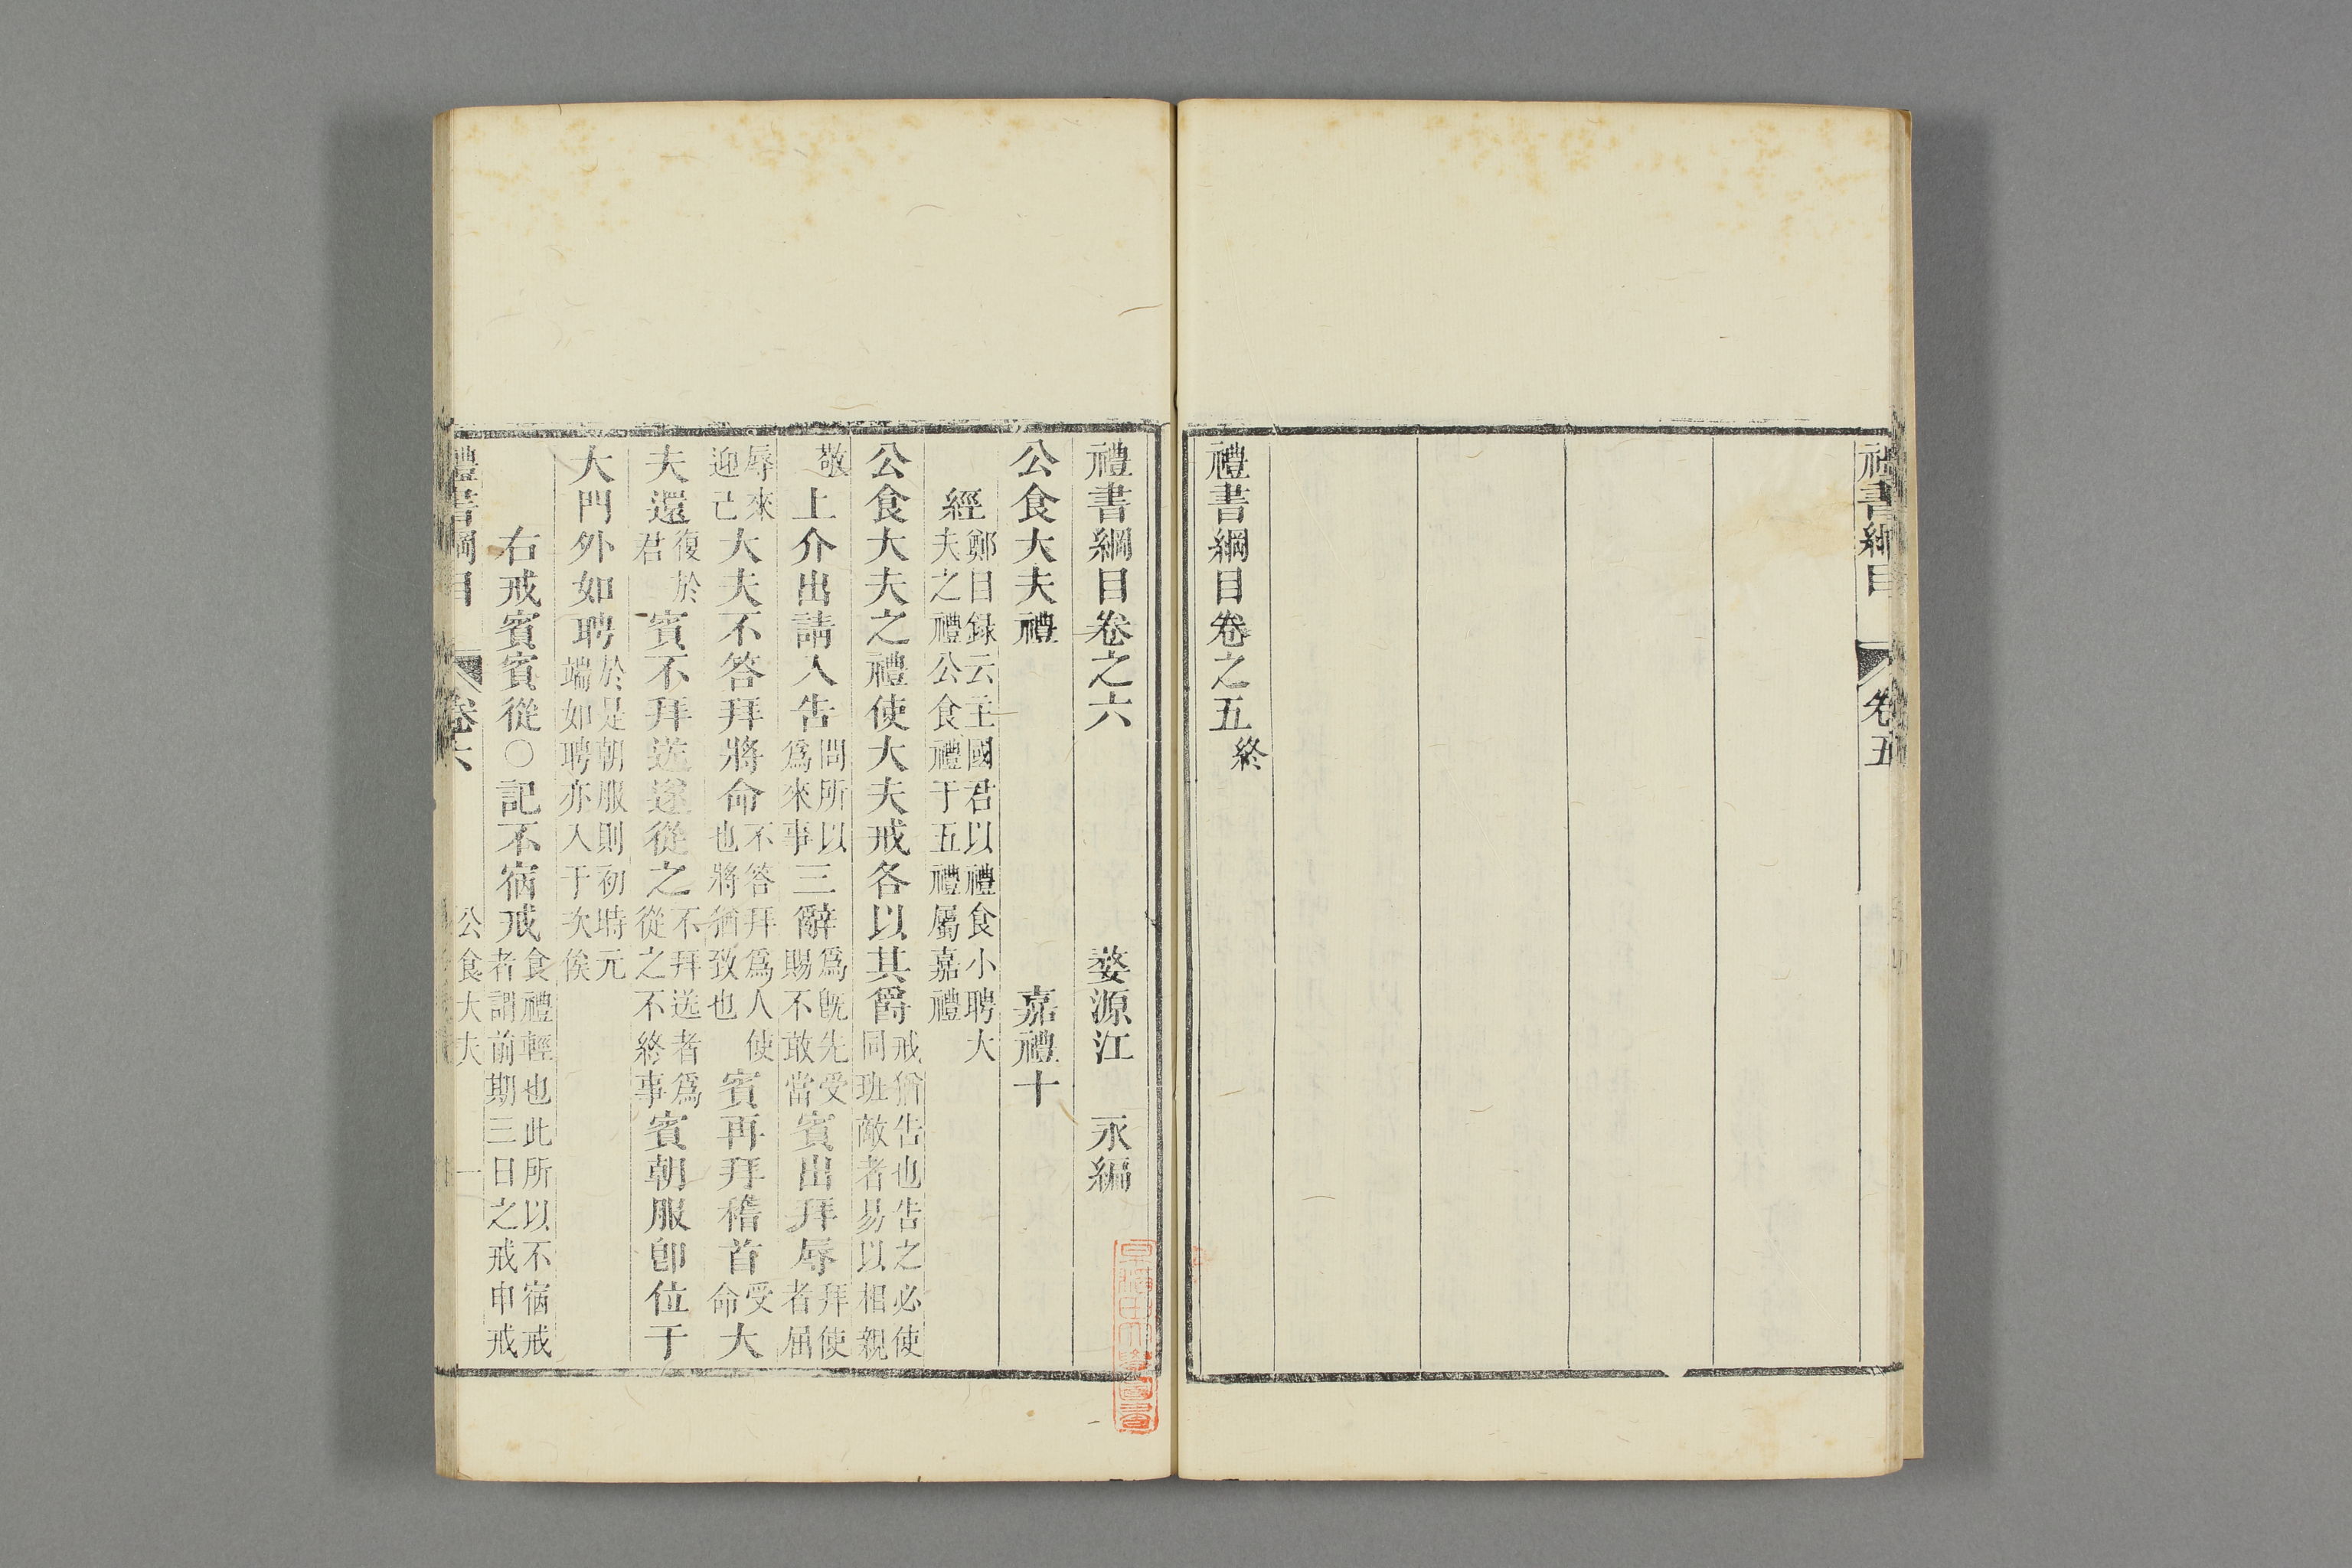 禮書綱目 卷五
禮書綱目卷之五終
禮書綱目卷之六 婺源江 永編
公食大夫禮 嘉禮十
經鄭目録云主國君以禮食小聘大夫之禮公食禮于五禮屬嘉禮
公食大夫之禮使大夫戒各以其爵戒猶告也告之必使同班敵者易以相親
敬上介出請入告問所以爲來事三辭爲旣先受賜不敢當賓出拜辱拜使者屈
辱來迎己大夫不答拜將命不答拜爲人使也將猶致也賓再拜稽首受命大
夫還復於君賓不拜送遂從之不拜送者爲從之不終事賓朝服卽位于
大門外如聘於是朝服則初時元端如聘亦入于次俟
右戒賓賓從○記不宿戒食禮輕也此所以不宿戒者謂前期三日之戒申戒
禮書綱目 卷六 公食大夫 一
早稻田大學圖書